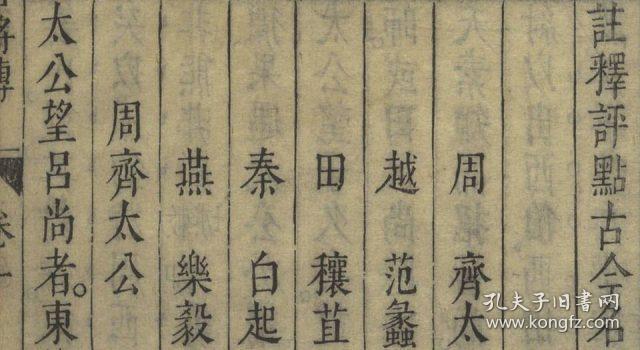 註釋評點古今名
周 齊太
越 范蠡
田 穰苴
秦 白起
燕 樂毅
周齊太公
太公望呂尚者。東
孔夫子旧书网
www.kongfz.com